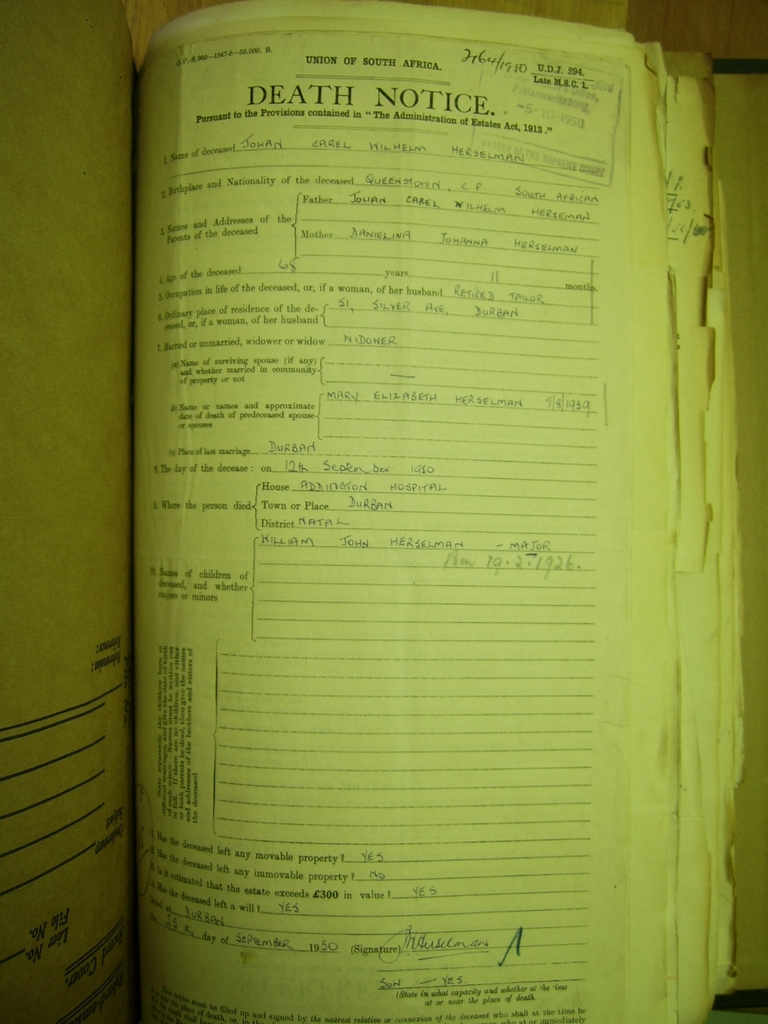 UNION OF SOUTH AFRICA.
2164/1950 U.D.J. 294.
Late M.S.C. 1.
-5-10-1950
DEATH NOTICE.
Pursuant to the Provisions contained in "The Administration of Estates Act, 1913."
1. Name of deceased JOHAN CAREL WILHELM HERSELMAN
2. Birthplace and Nationality of the deceased QUEENSTOWN, C.P. SOUTH AFRICAN
3. Names and Addresses of the Parents of the deceased
Father JOHAN CAREL WILHELM HERSEMAN
Mother DANIELINA JOHANNA HERSELMAN
4. Age of the deceased 68 years 11 months
5. Occupation in life of the deceased, or, if a woman, of her husband RETIRED TAILOR
6. Ordinary place of residence of the de-
ceased, or, if a woman, of her husband
51, SILVER AVE, DURBAN
7. Married or unmarried, widower or widow WIDOWER
(a) Name of surviving spouse (if any)
and whether married in community
of property or not —
(b) Name or names and approximate
date of death of predeceased spouse
or spouses
MARY ELIZABETH HERSELMAN 7/8/1939
(c) Place of last marriage DURBAN
8. The day of the decease: on 12th September 1950
9. Where the person died
House ADDINGTON HOSPITAL
Town or Place DURBAN
District NATAL
WILLIAM JOHN HERSELMAN - MAJOR
19.2.1926.
10. Names of children of
deceased, and whether
majors or minors
of each spouse
in full. If there are no children, and either
or both parents be dead, then give the names
and addresses of the brothers and sisters of
the deceased
Has the deceased left any movable property? YES
Has the deceased left any immovable property? NO
Is it estimated that the estate exceeds £300 in value? YES
Has the deceased left a will? YES
Dated at DURBAN
day of SEPTEMBER 1950 (Signature) Herselman
SON — YES
(State in what capacity and whether at the time
at or near the place of death.
must be filled up and signed by the nearest relative or connexion of the deceased who shall at the time be